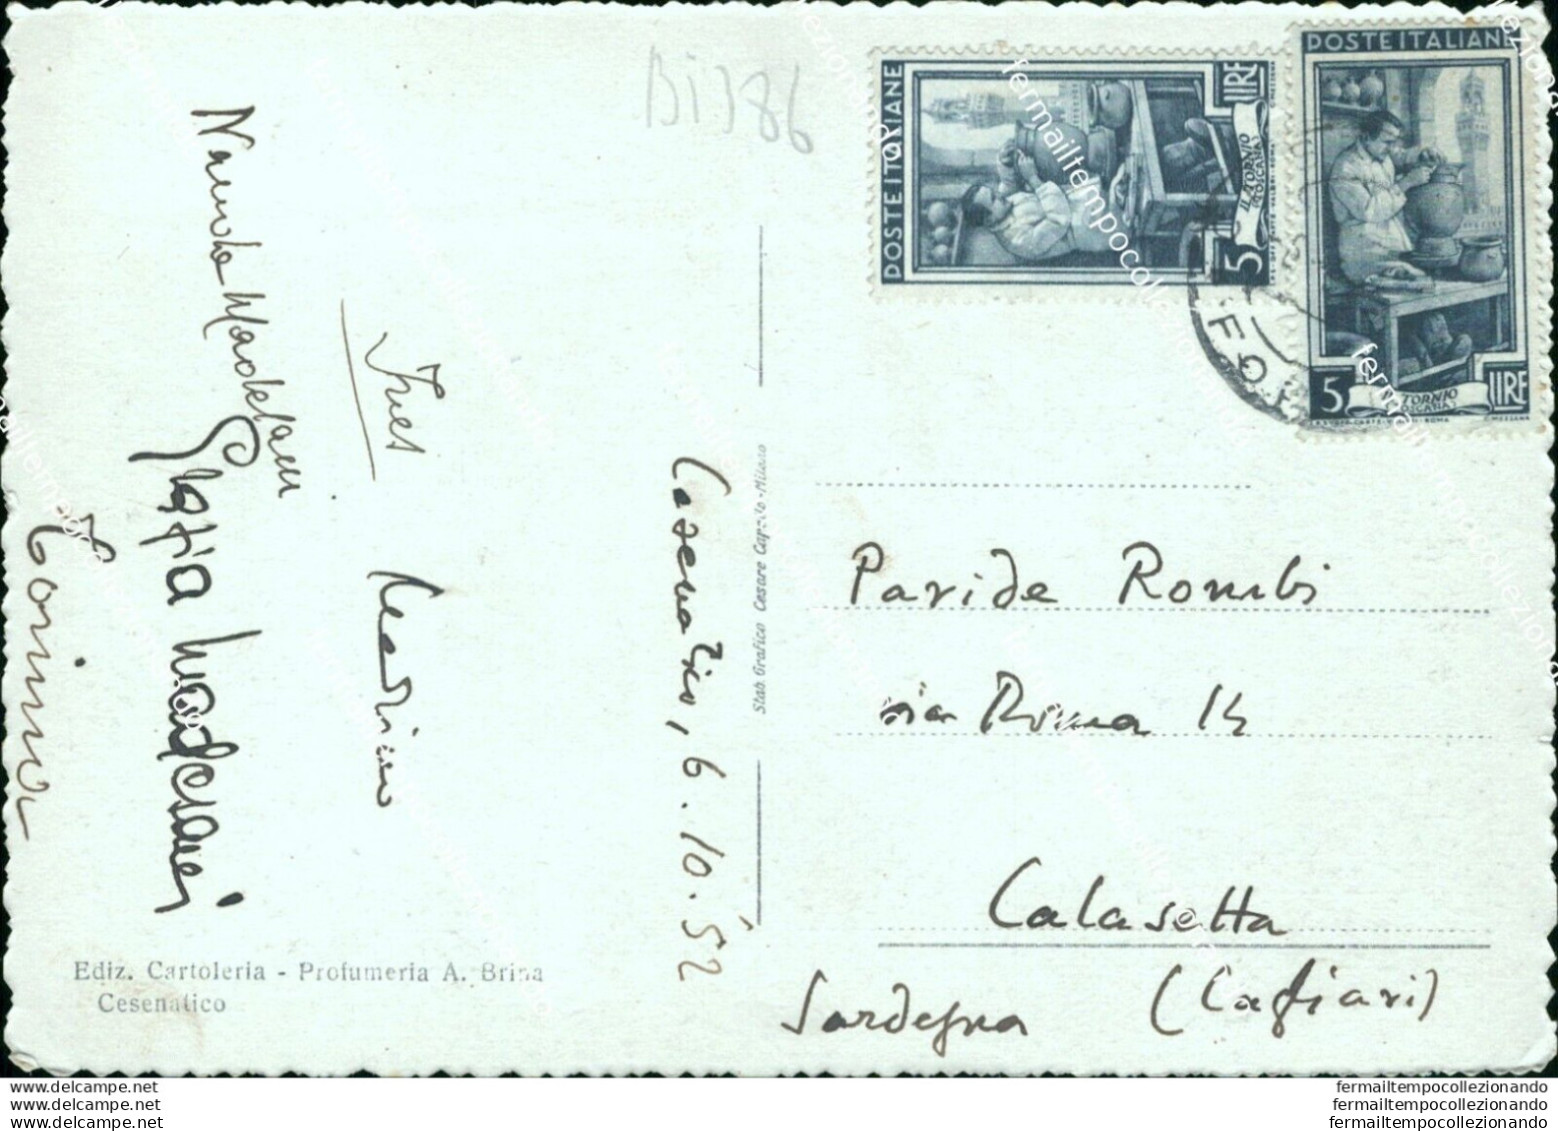 Bi386
POSTE ITALIANE
5 LIRE
IL TORNIO
(TOSCANA)
POSTE ITALIANE
5 LIRE
TORNIO
FO
Ines
Torino
Cesenatico, 6.10.52
Stab. Grafico Cesare Capello - Milano
Paride Rombi
via Roma 14
Calasetta
(Cagliari)
Sardegna
Ediz. Cartoleria - Profumeria A. Brina
Cesenatico
www.delcampe.net
www.delcampe.net
www.delcampe.net
fermailtempocollezionando
fermailtempocollezionando
fermailtempocollezionando